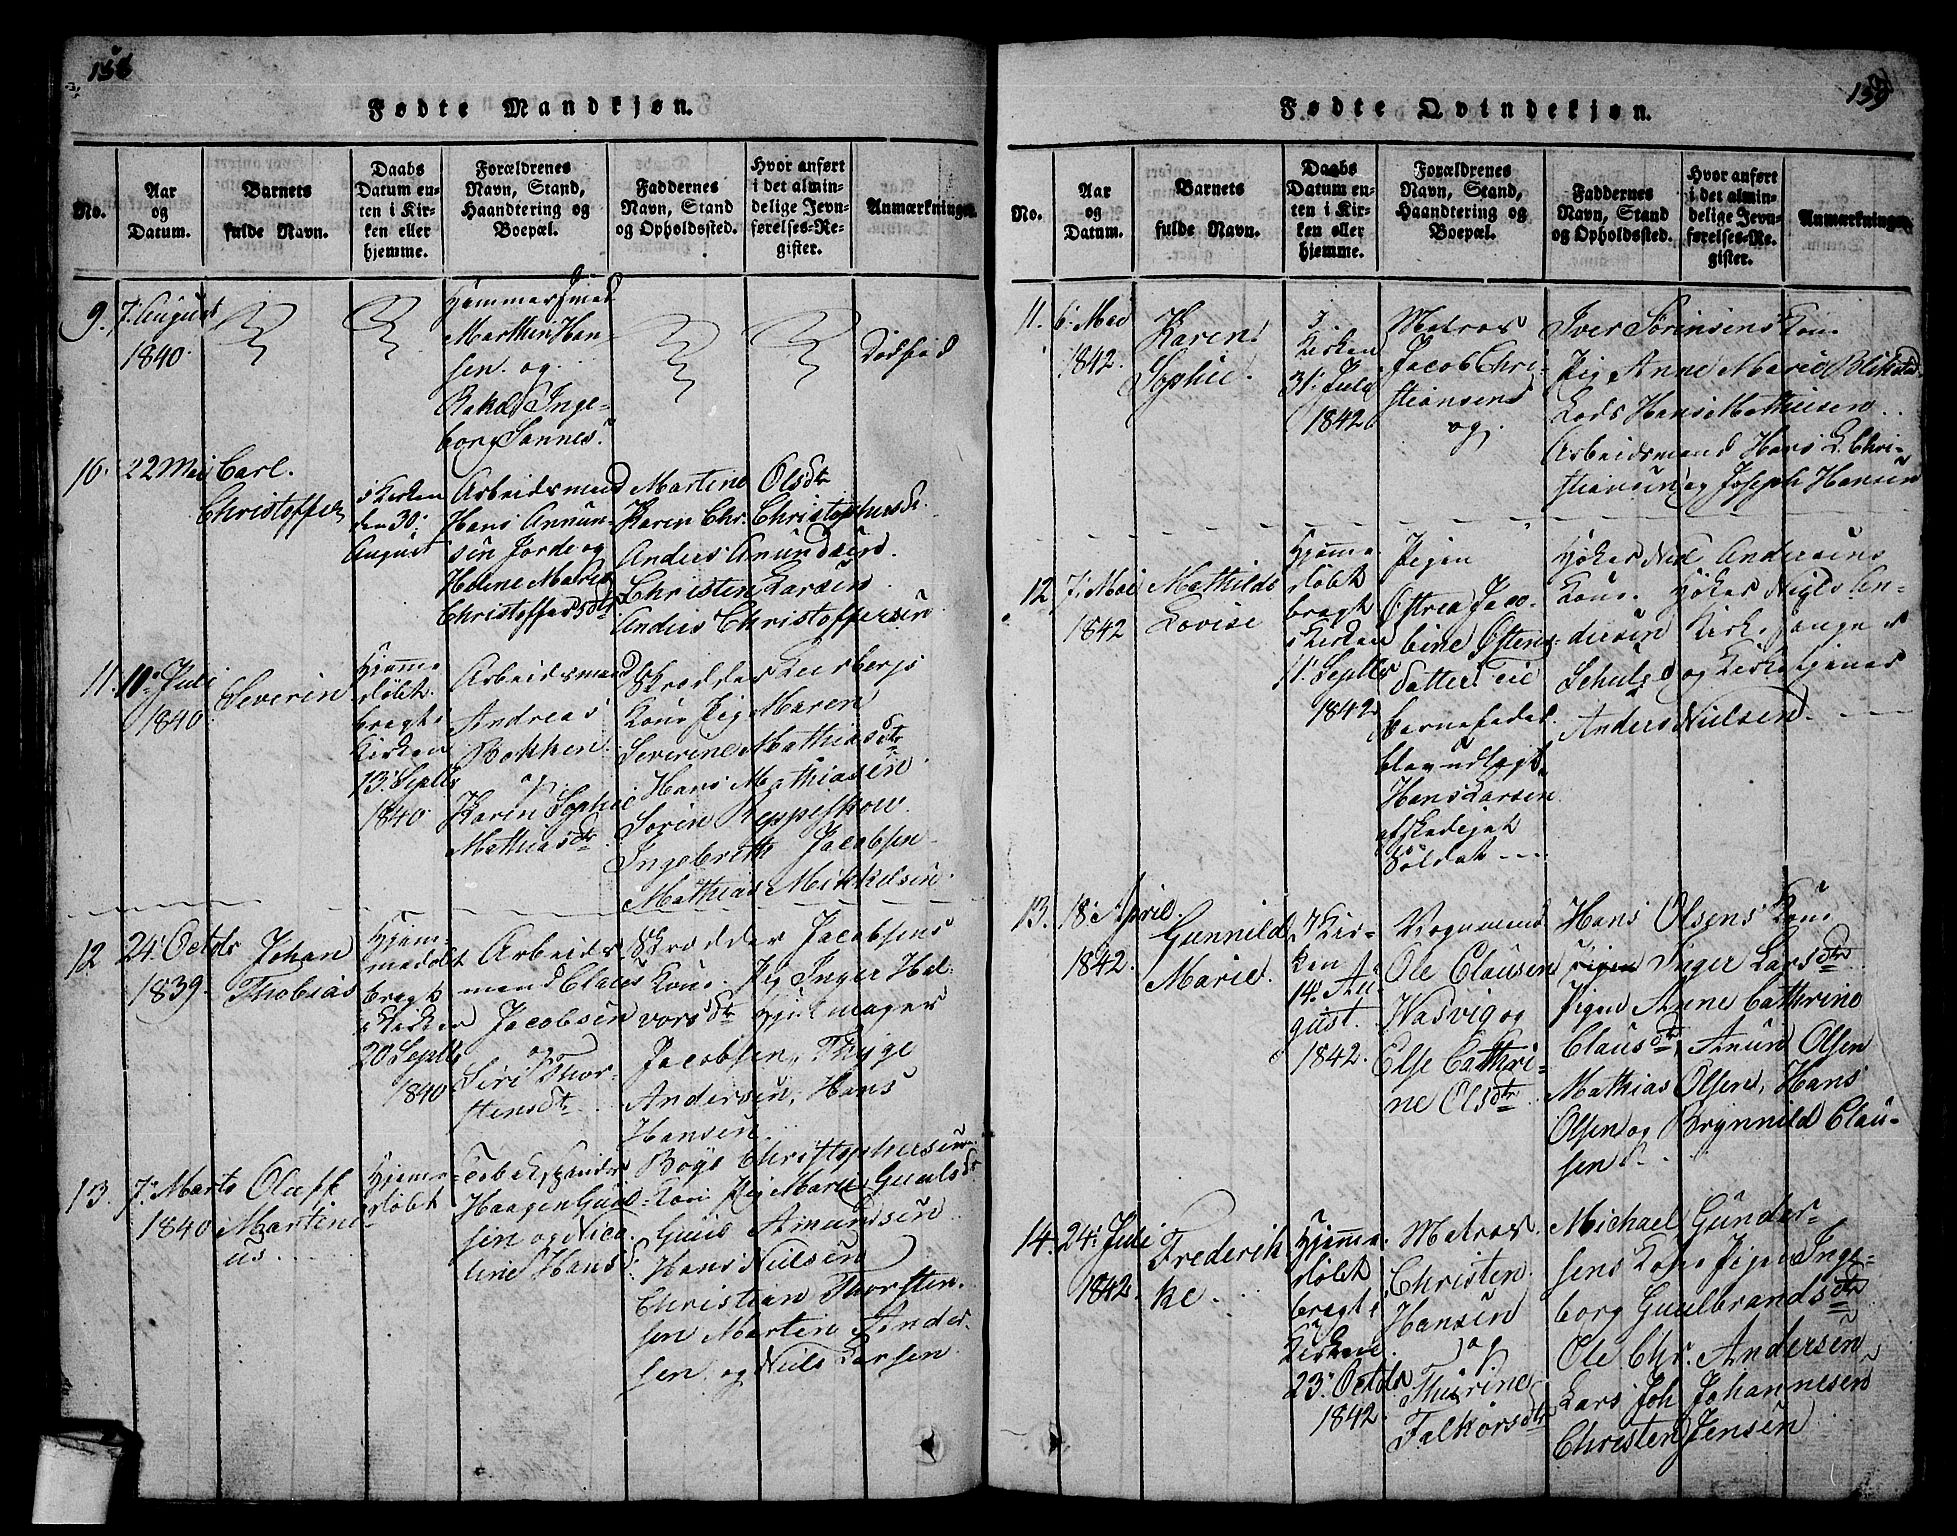 158
Fødte Mandkjøn.
No.
Aar
og
Datum.
Barnets
fulde Navn.
Daabs
Datum en-
ten i Kir-
ken eller
hjemme.
Forældrenes
Navn, Stand,
Haandtering og
Boepæl.
Faddernes
Navn, Stand
og Opholdssted.
Hvor anført
i det almin-
delige Jevn-
førelses-Re-
gister.
Anmærkninger.
9.
7. August
1840.
Hammersmed
Marthin Han-
sen og
Rakel Inge-
borg Sannes.
Dødfød
10.
22 Mai
Carl
Christoffer
i Kirken
den 30.
August
Arbeidsmand
Hans Annun-
sen Jorde og
Helene Marie
Christoffersdtr
Martine Olsdtr
Karen Chr. Christophersd.
Anders Anundsen.
Christen Larsen
Anders Christoffersen
11.
11. Juli
1840
Severin
Hjemme
døbt
bragt i
Kirken
13. Septbr
1840
Arbeidsmand
Andreas
Bakken
og
Karen Sophie
Mathiasdtr.
Skrædder
Kone Pig. Maren
Severine Mathiasdtr
Hans Mathiasen.
Søren Reppeskow.
Ingebrith Jacobsen
Mathias Mikkelsen.
12
24. Octbr
1839.
Johan
Thobias
Hjem-
medøbt
bragt
i Kirken
20 Septbr
1840
Arbeids-
mand Claus
Jacobsen
og
Siri Thor-
stensdtr.
Skrædder Jacobsens
Kone. Pig. Inger Hal-
vorsdtr Hjulmager
Jacobsen, Thyge
Andersen, Hans
Hansen.
13.
7. Marts
1840
Olaff
Martine-
us.
Hjemme-
døbt
Haagen Guul-
sen og Nico-
line Hansd.
Boye Christophersens
Kone Pig. Marie Guulsdt
Guul Amundsen
Hans Nielsen
Christian Thorsten-
sen Martin Ander-
sen og Niels Larsen.
159
Fødte Qvindekjøn.
No.
Aar
og
Datum.
Barnets
fulde Navn.
Daabs
Datum en-
ten i Kir-
ken eller
hjemme.
Forældrenes
Navn, Stand,
Haandtering og
Boepæl.
Faddernes
Navn, Stand
og Opholdssted.
Hvor anført
i det almin-
delige Jevn-
førelses-Re-
gister.
Anmærkninger.
11.
6. Mai
1842.
Karen
Sophie.
I
Kirken
31. Juli
1842
Matros
Jacob Chri-
stiansen
og.
Iver Sørensens Kone
Pig. Anne Marie
Lods Hans Mathisen
Arbeidsmand Hans L. Chri-
stiansen og Joseph Hansen
12
7. Mai
1842
Mathilde
Lovise
Hjemme
døbt
bragt
i Kirken
11. Septbr
1842
Pigen
Ostrea Jaco-
bine Ostens-
datter Til
barnefader
blev udlagt
Hans Larsen
afskediget
Soldat
Høker Niels Andersens
Kone. Høker Niels An-
dersen Kirkesanger
Schulze og Kirketjener
Anders Nielsen.
13.
18. April.
1842.
Gunnild
Marie.
I Kir-
ken
14. Au-
gust.
1842.
Vognmand
Ole Clausen
Wasvig og
Else Cathri-
ne Olsdtr
Hans Olsens Kone
Pigen Inger Larsdtr
Pigen Anne Cathrine
Clausdtr, Anun Olsen
Mathias Olsen, Hans
Olsen og Brynnild Clau-
sen.
14.
24. Juli
1842.
Frederik-
ke
Hjemme
døbt
bragt i
Kirken
23. Octbr
1842.
Matros
Christen
Hansen
og
Thurine
Falkorsdtr
Michael Gunder-
sens Kone Pigen Inge-
borg Guulbrandsdtr
Ole Chr. Andersen
Lars Joh. Johannesen
Christen Jensen